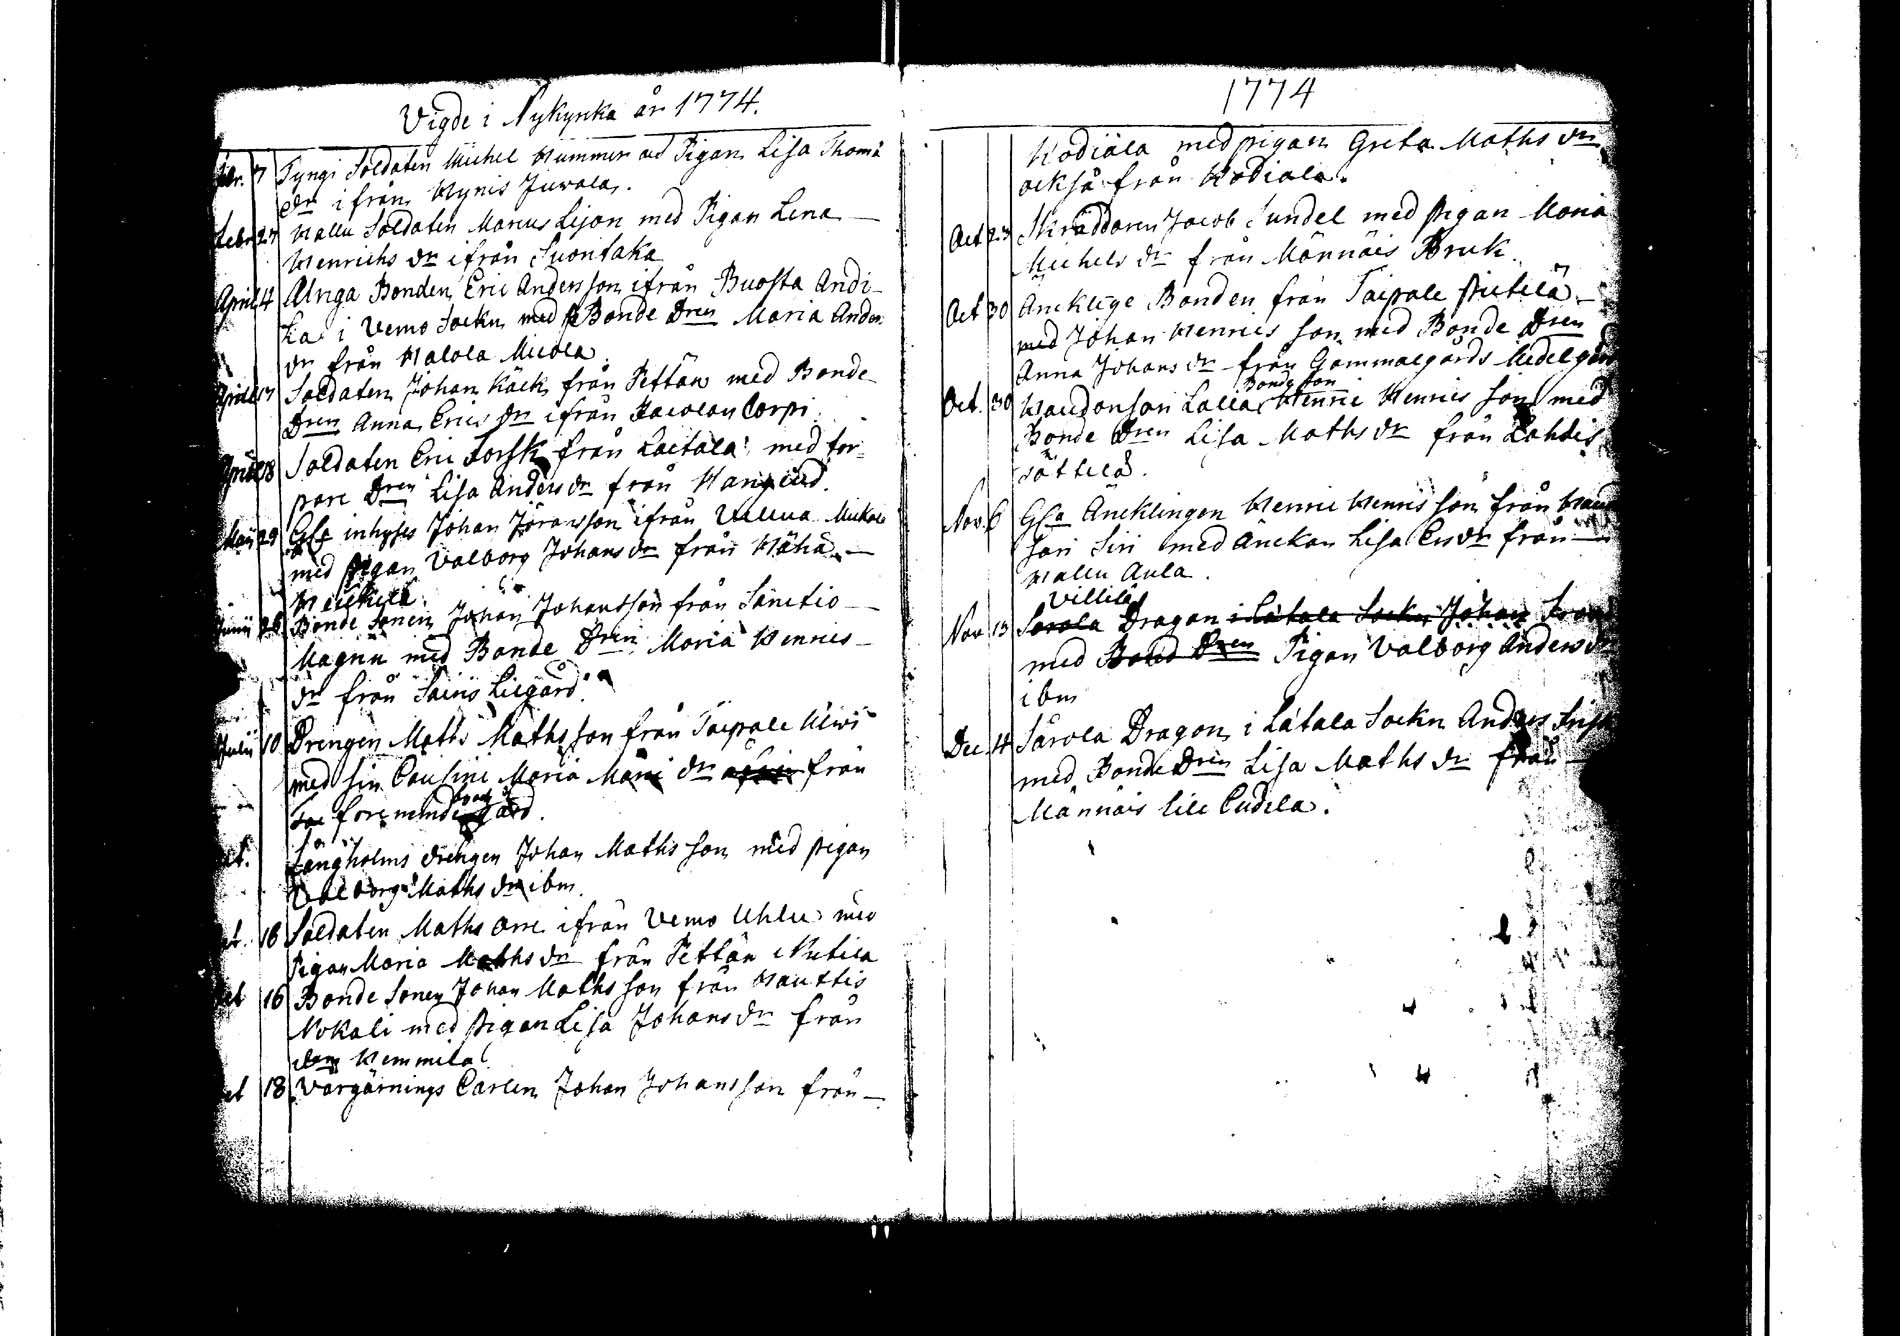 Vigde i Nykyrka år 1774.
Febr. 7 Tyngi Soldaten Michel Hummer med Pigan Lisa Thomæ
dr ifrån Hynis Juvala.
Febr 27 Hallu Soldaten Marcus Lejon med Pigan Lena
Henrichs dr ifrån Suontaka
April 4 Unga Bonden Eric Andersson ifrån Buosta Andi-
la i Vemo Sockn med Bonde Dren Maria Anders
dr från Halola Micola.
April 17 Soldaten Johan Käck från Pettän med Bonde
Dren Anna Erics dr ifrån Jacolan Corpi.
April 18 Soldaten Eric Torsk från Laitala med tor-
pare Dren Lisa Anders dr från Hanglud.
Maii 29 Gla inhyses Johan Jöransson ifrån Mickola
med pigan Valborg Johans dr från Hähä
Heickilä.
Junii 26 Bonde Sonen Johan Johansson från Sanctio
Magnu med Bonde Dren Maria Hennics
dr från Sairis Lilgård.
Julii 10 Drengen Maths Mathsson från Taipale Ulwi
med sin Cousine Maria från
förenemnde gård.
Långholms drengen Johan Mathsson med pigan
Valborg Maths dr ibm.
16 Soldaten Maths Orre ifrån Vemo Uhlu med
Pigan Maria Maths dr från Pettän
16 Bonde Sonen Johan Mathsson från Hauttis
Nokali med pigan Lisa Johans dr från
Hemmila
18 Vargärnings Carlen Johan Johansson från
1774
Kodiala med pigan Greta Maths dr
också från Kodiala.
Oct 23 Skräddaren Jacob Sundel med pigan Maria
Michels dr från Männäis Bruk.
Oct 30 Äncklige Bonden från Taipale Pietilä
med Johan Hennics son med Bonde Dren
Anna Johans dr från Gammalgårds Medelgård
Bonde son
Oct. 30 Haudonsari Lalla Henric Henrics son med
Bonde Dren Lisa Maths dr från Lahdis
Sättilä.
Nov. 6 Gla Äncklingen Henric Henrics son från Haud
sari Siri med änckan Lisa Ers dr från
Hallu Aula.
Villilä
Nov 13 Sarola Dragon i Låtala Sockn Johan
med Bond Dren Pigan Valborg Anders dr
ibm
Dec 4 Sarola Dragon i Låtala Sockn Anders Frisk
med Bonde Dren Lisa Maths dr från
Männäis lille Cudila.